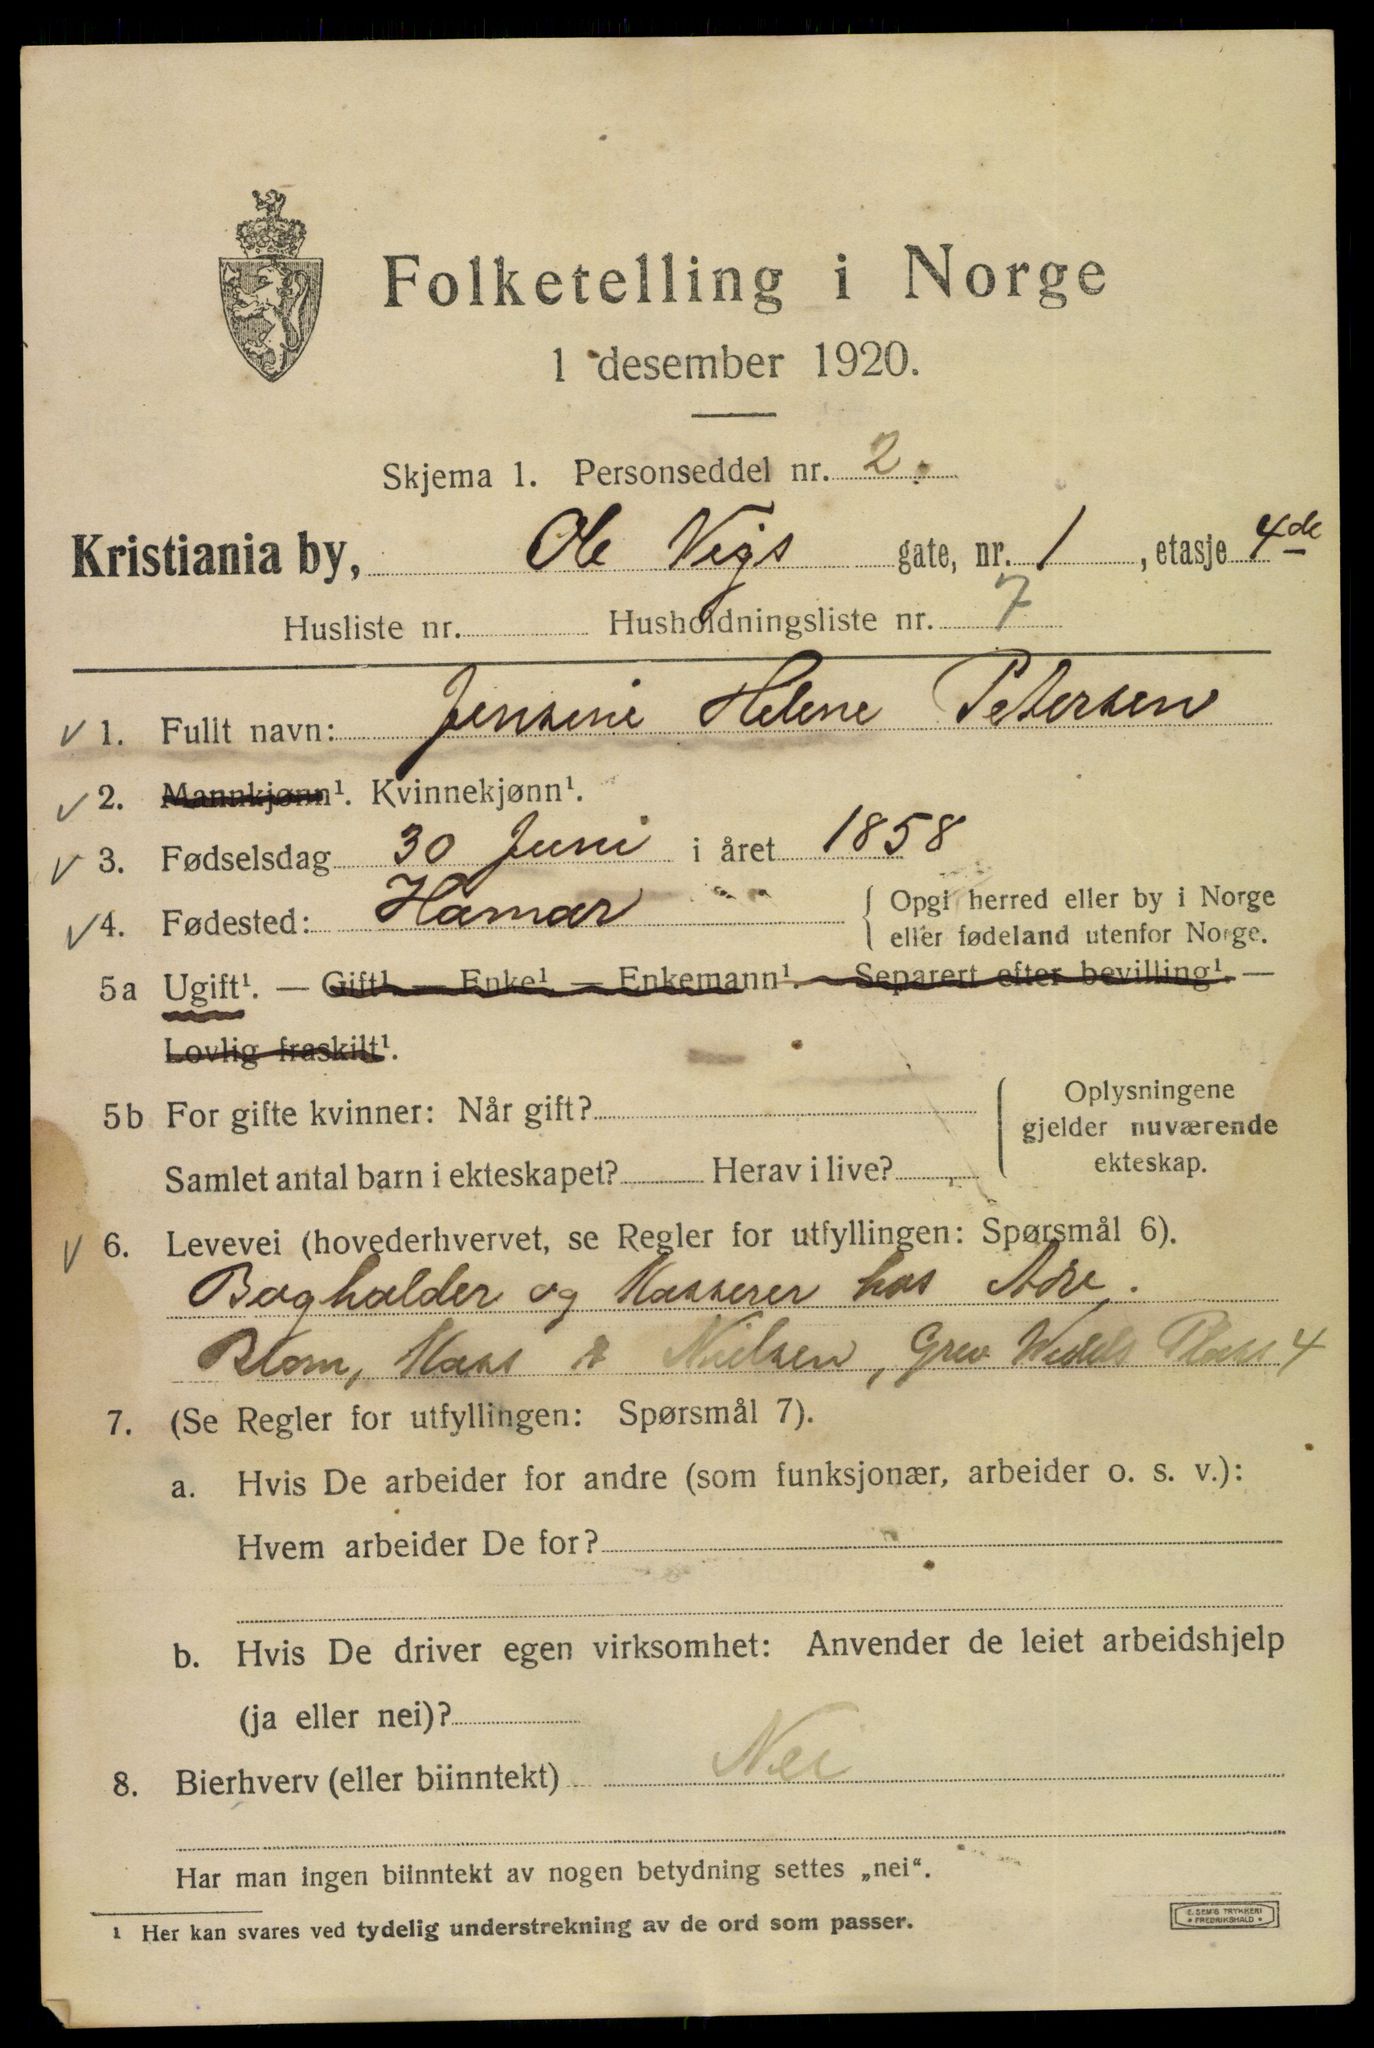 Folketelling i Norge
1 desember 1920.
Skjema 1. Personseddel nr. 2.
Kristiania by, Ole Vigs gate, nr. 1, etasje 4de
Husliste nr. Husholdningsliste nr. 7
1. Fullt navn: Jensine Helene Petersen
2. Mannkjønn¹. Kvinnekjønn¹.
3. Fødselsdag 30 Juni i året 1858
4. Fødested: Hamar { Opgi herred eller by i Norge
eller fødeland utenfor Norge.
5a Ugift¹. — Gift¹. — Enke¹. — Enkemann¹. — Separert efter bevilling¹. —
Lovlig fraskilt¹.
5b For gifte kvinner: Når gift? { Oplysningene
gjelder nuværende
Samlet antal barn i ekteskapet? Herav i live? ekteskap.
6. Levevei (hovederhvervet, se Regler for utfyllingen: Spørsmål 6).
Bogholder og Kasserer hos
Blom, & Nielsen, Grev Wedels Plass 4
7. (Se Regler for utfyllingen: Spørsmål 7).
a. Hvis De arbeider for andre (som funksjonær, arbeider o. s. v.):
Hvem arbeider De for?
b. Hvis De driver egen virksomhet: Anvender de leiet arbeidshjelp
(ja eller nei)?
8. Bierhverv (eller biinntekt) Nei
Har man ingen biinntekt av nogen betydning settes „nei“.
¹ Her kan svares ved tydelig understrekning av de ord som passer.
E. SEM'S TRYKKERI
* FREDRIKSHALD *